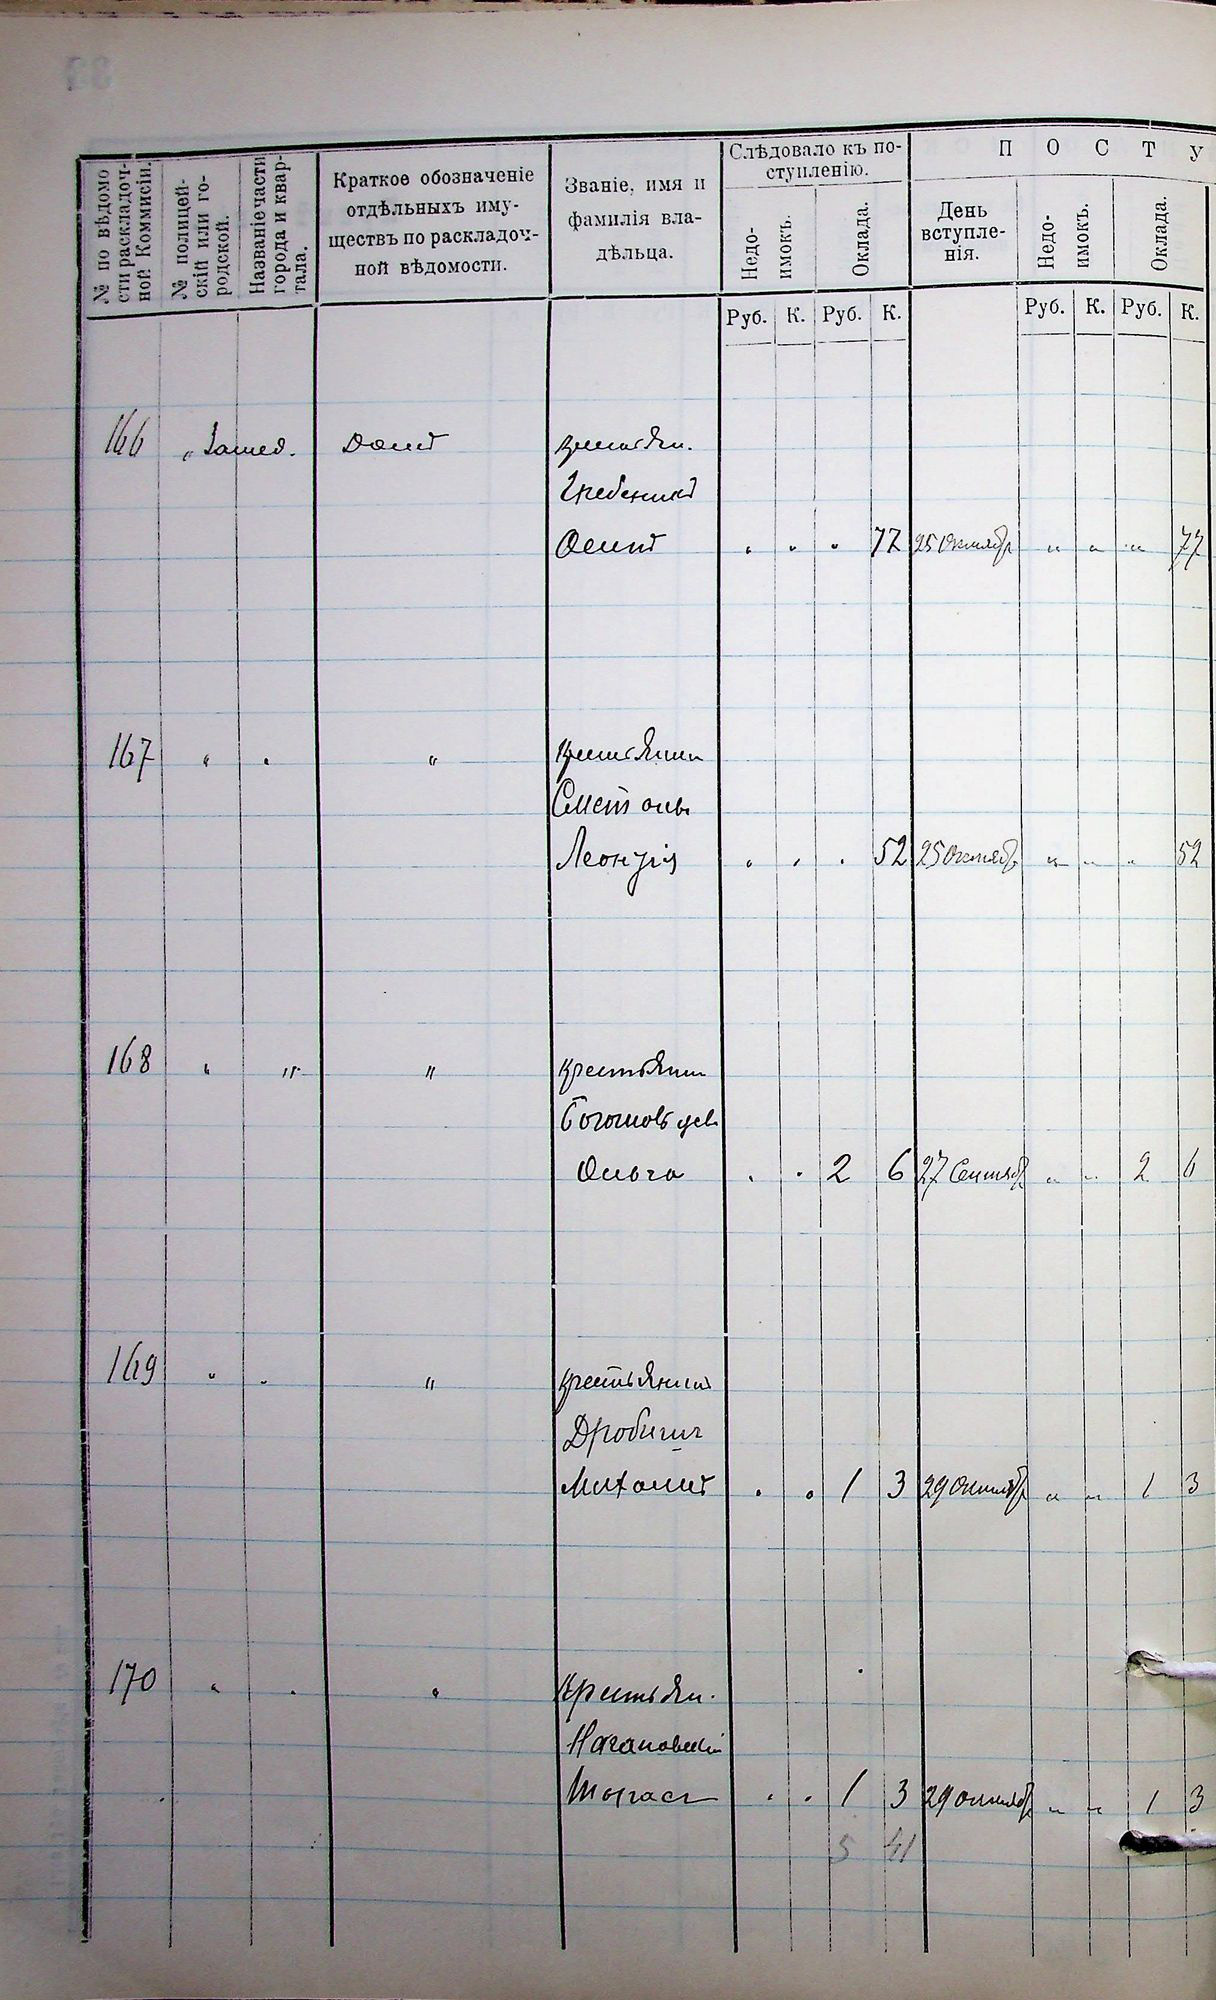 № по вѣдомо
сти раскладоч-
ной Коммисіи.
№ полицей-
скій или го-
родской.
Названіе части
города и квар-
тала.
Краткое обозначеніе
отдѣльныхъ иму-
ществъ по раскладоч-
ной вѣдомости.
Званіе, имя и
фамилія вла-
дѣльца.
Слѣдовало къ по-
ступленію.
Недо-
имокъ.
Оклада.
П О С Т У
День
вступле-
нія.
Недо-
имокъ.
Оклада.
Руб. К. Руб. К. Руб. К. Руб. К.
166 " Домъ Крестьян.
Гребеникъ
Осипъ " " " 77 25 Октябр " " " 77
167 " " " Крестьянин
Леонтія " " " 52 25 Октябр " " " 52
168 " " " Крестьянин
Ольга " " 2 6 27 Сентябр " " 2 6
169 " " " Крестьянинъ
Дробыш
Михаилъ " " 1 3 29 Октябр " " 1 3
170 " " " Крестьян.
" " 1 3 29 октябр " " 1 3
5 41